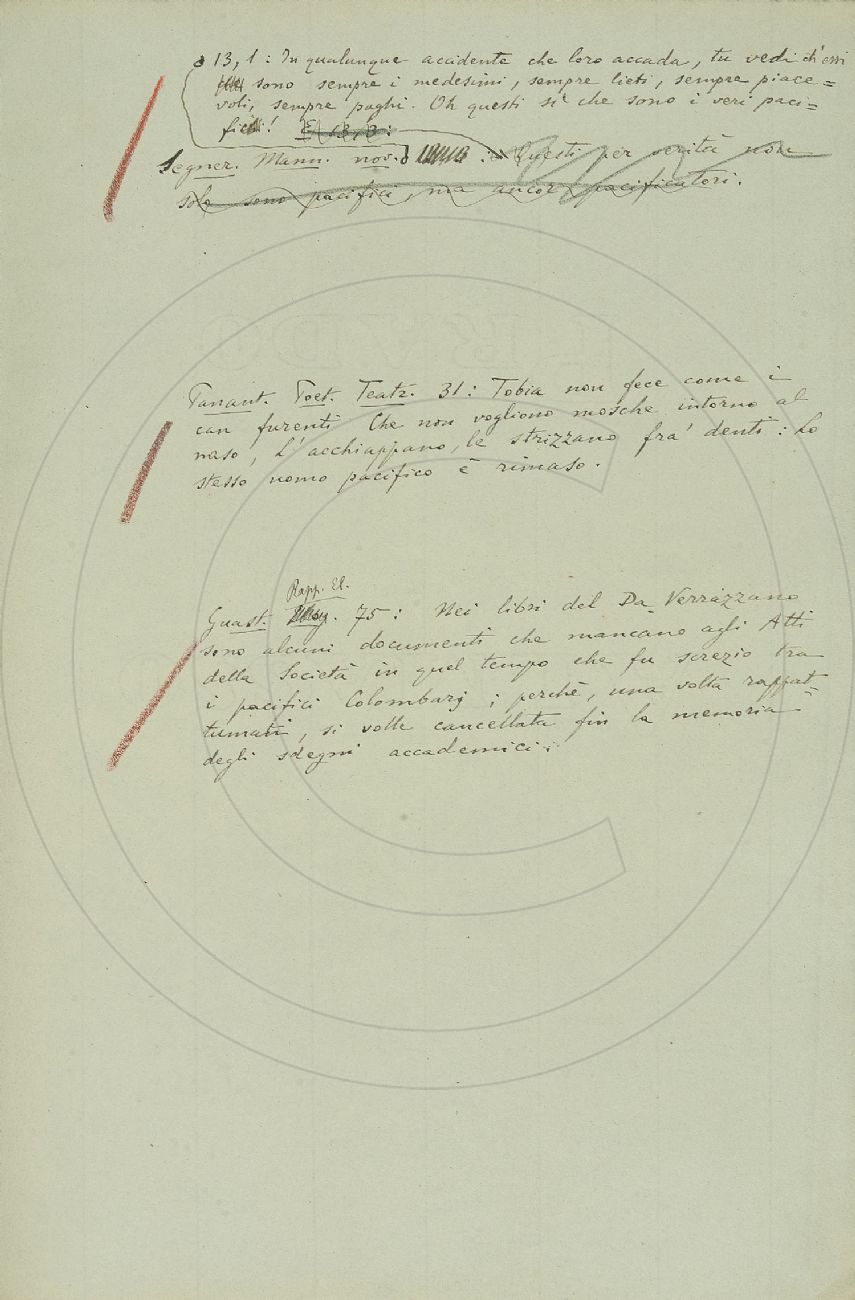 13, 1: In qualunque accidente che loro accada, tu vedi ch'essi
sono sempre i medesimi, sempre lieti, sempre piace=
voli, sempre paghi. Oh questi sì che sono i veri paci=
fici! E 13, 3:
Segner. Mann. nov. Questi per verità non
solo sono pacifici, ma ancor pacificatori.
Fanant. Poet. Teatr. 31: Tobia non fece come i
can furenti Che non vogliono mosche intorno al
naso, L'acchiappano, le strizzano fra' denti: Lo
stesso uomo pacifico è rimaso.
Rapp. El.
Guast. 75: Nei libri del Da Verrazzano
sono alcuni documenti che mancano agli Atti
della Società in quel tempo che fu screzio tra
i pacifici Colombarj; perchè, una volta rappat-
tumati, si volle cancellata fin la memoria
degli sdegni accademici: